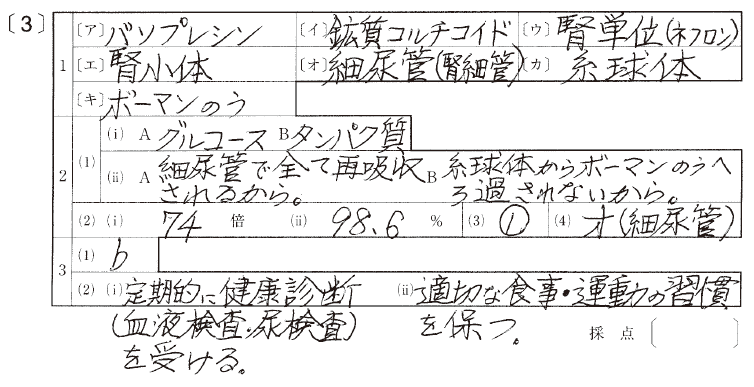 〔3〕
1 〔ア〕バソプレシン 〔イ〕鉱質コルチコイド 〔ウ〕腎単位(ネフロン)
〔エ〕腎小体 〔オ〕細尿管(腎細管) 〔カ〕糸球体
〔キ〕ボーマンのう
2 (1) (i) A グルコース B タンパク質
(ii) A 細尿管で全て再吸収されるから。 B 糸球体からボーマンのうへろ過されないから。
(2) (i) 74 倍 (ii) 98.6 % (3) ① (4) オ(細尿管)
3 (1) b
(2) (i) 定期的に健康診断 (ii) 適切な食事・運動の習慣
(血液検査・尿検査) を保つ。 採点〔 〕
を受ける。